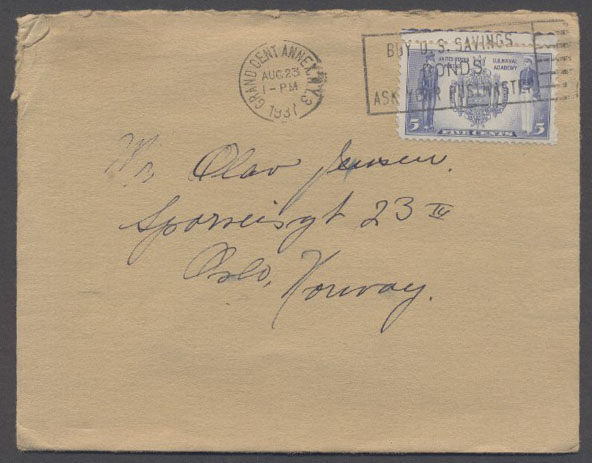 GRAND CENT. ANNEX, N.Y. 3
AUG 23
1 - PM
1937
BUY U.S. SAVINGS
BONDS
ASK YOUR POSTMASTER
UNITED STATES U.S. NAVAL
ACADEMY
5 FIVE CENTS 5
Mr Olav Jensen.
Sporveisgt 23 IV
Oslo, Norway.